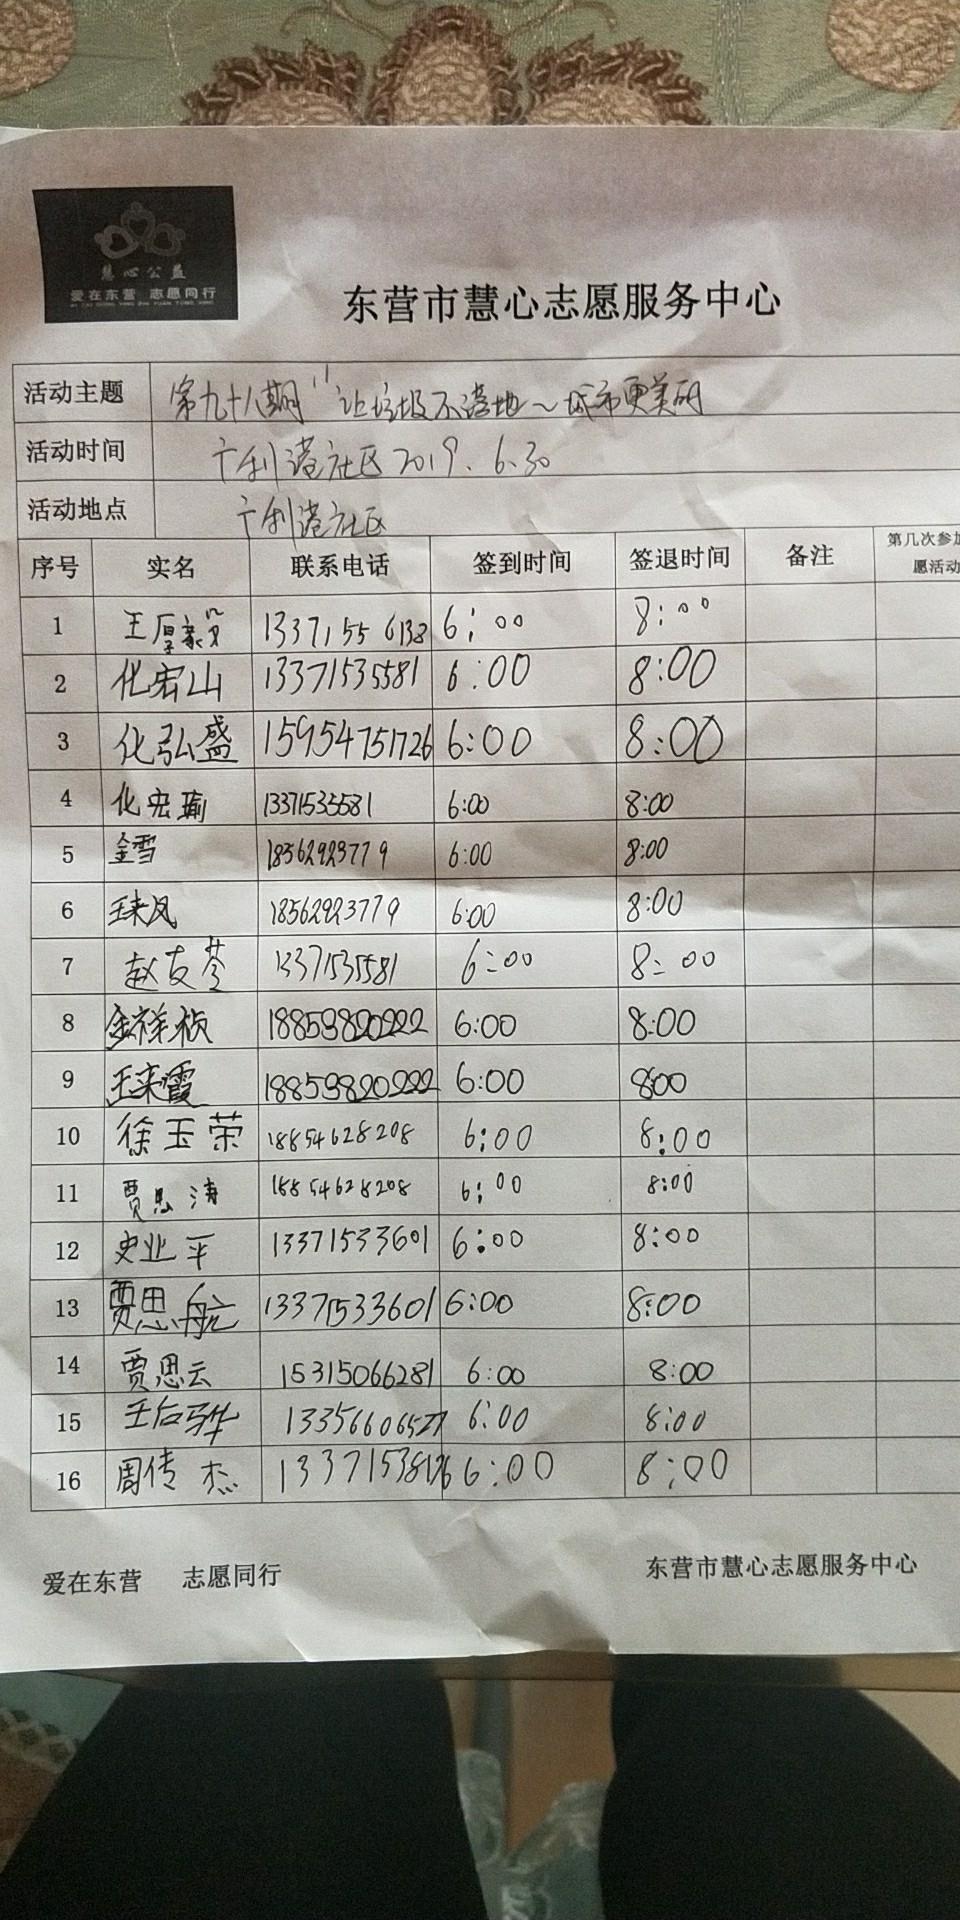 慧心公益
爱在东营 志愿同行
东营市慧心志愿服务中心
活动主题 第九十八期"让垃圾不落地~城市更美丽
活动时间 广利港社区2019.6.30
活动地点 广利港社区
序号 实名 联系电话 签到时间 签退时间 备注 第几次参加
愿活动
1 王厚毅 13371556138 6:00 8:00
2 化宏山 13371535581 6:00 8:00
3 化弘盛 15954751726 6:00 8:00
4 化宏瑜 13371535581 6:00 8:00
5 金雪 18562923779 6:00 8:00
6 王来凤 18562923779 6:00 8:00
7 赵友苓 13371535581 6:00 8:00
8 金祥祯 18859820222 6:00 8:00
9 王来霞 18859820222 6:00 8:00
10 徐玉荣 18854628208 6:00 8:00
11 贾思涛 18854628208 6:00 8:00
12 史业平 13371533601 6:00 8:00
13 贾思航 13371533601 6:00 8:00
14 贾思云 15315066281 6:00 8:00
15 王后骅 13356606527 6:00 8:00
16 周传杰 6:00 8:00
爱在东营 志愿同行 东营市慧心志愿服务中心